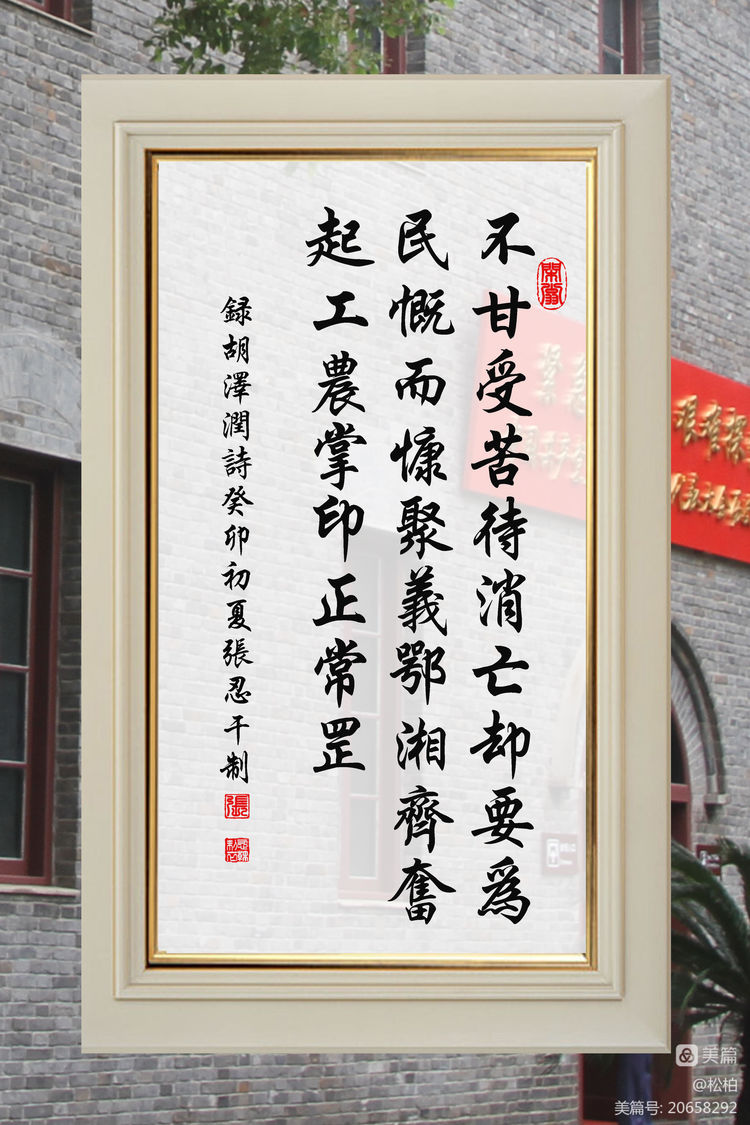 不甘受苦待消亡却要爲
民慨而慷聚義鄂湘齊奮
起工農掌印正常罡
録胡澤潤詩癸卯初夏張忍干制
張
美篇
@松柏
美篇号: 20658292